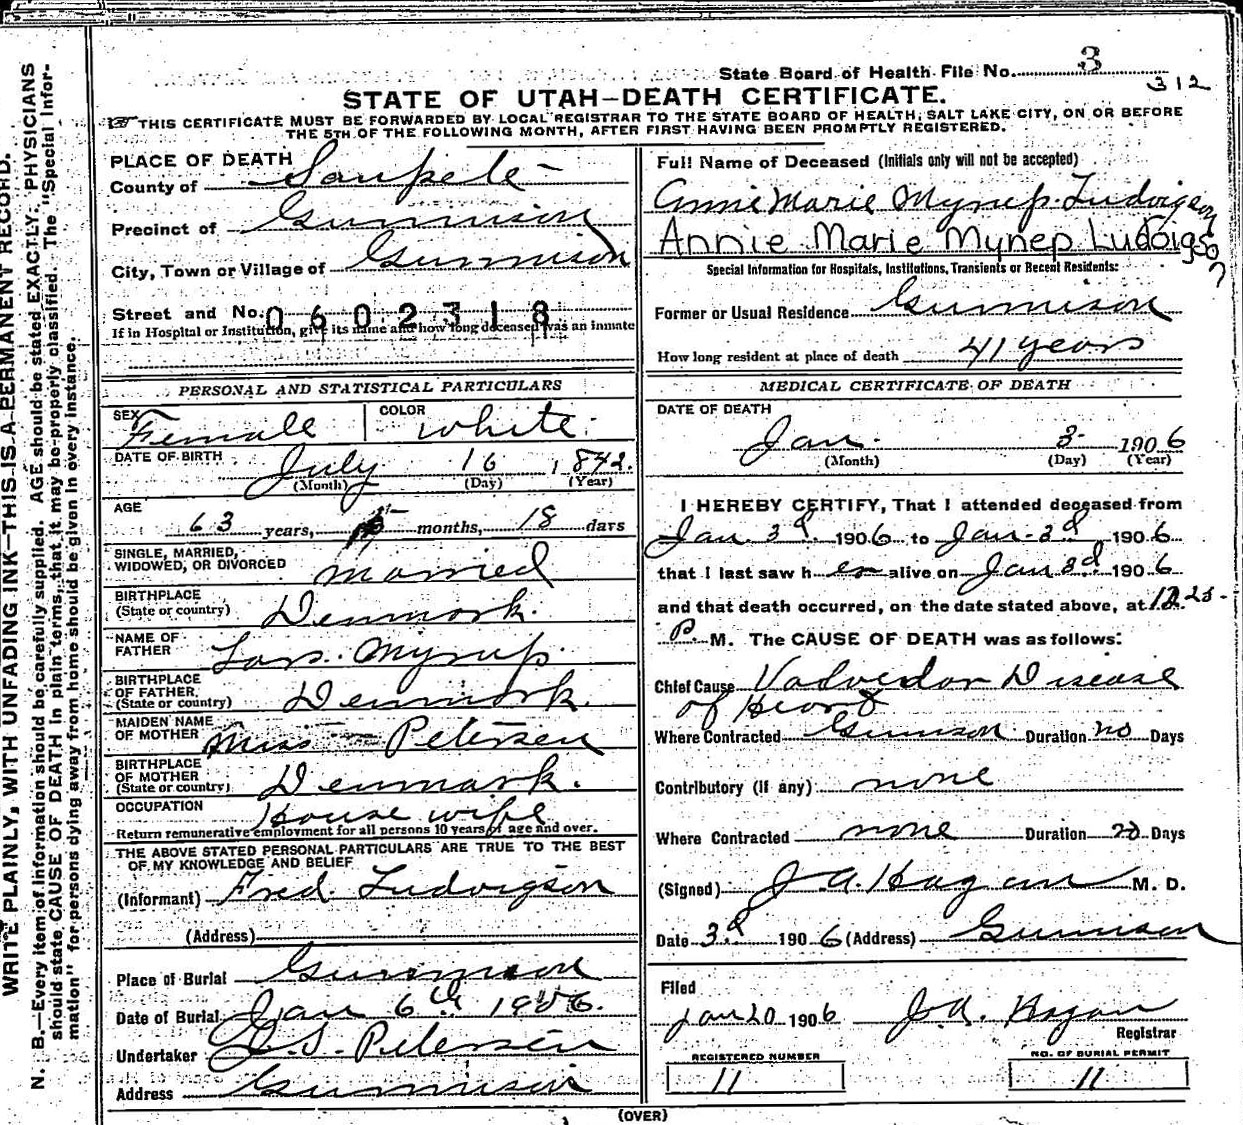 State Board of Health File No. 3
312
STATE OF UTAH—DEATH CERTIFICATE.
THIS CERTIFICATE MUST BE FORWARDED BY LOCAL REGISTRAR TO THE STATE BOARD OF HEALTH, SALT LAKE CITY, ON OR BEFORE
THE 5TH OF THE FOLLOWING MONTH, AFTER FIRST HAVING BEEN PROMPTLY REGISTERED.
WRITE PLAINLY, WITH UNFADING INK—THIS IS A PERMANENT RECORD.
N. B.—Every item of information should be carefully supplied. AGE should be stated EXACTLY. PHYSICIANS
should state CAUSE OF DEATH in plain terms, that it may be properly classified. The "Special Infor-
mation" for persons dying away from home should be given in every instance.
PLACE OF DEATH
County of Sanpete
Precinct of Gunnison
City, Town or Village of Gunnison
Street and No. 0602318
If in Hospital or Institution, give its name and how long deceased was an inmate
PERSONAL AND STATISTICAL PARTICULARS
SEX Female COLOR White.
DATE OF BIRTH July 16 1842.
(Month) (Day) (Year)
AGE 63 years, 5 months, 18 days
SINGLE, MARRIED,
WIDOWED, OR DIVORCED Married
BIRTHPLACE
(State or country) Denmark.
NAME OF
FATHER Lars. Myrup.
BIRTHPLACE
OF FATHER
(State or country) Denmark.
MAIDEN NAME
OF MOTHER Miss — Petersen
BIRTHPLACE
OF MOTHER
(State or country) Denmark.
OCCUPATION House wife
Return remunerative employment for all persons 10 years of age and over.
THE ABOVE STATED PERSONAL PARTICULARS ARE TRUE TO THE BEST
OF MY KNOWLEDGE AND BELIEF
(Informant) Fred. Ludvigson
(Address)
Place of Burial Gunnison
Date of Burial Jan 6th 1906.
Undertaker Petersen
Address Gunnison
Full Name of Deceased (Initials only will not be accepted)
Annie Marie Myrup Ludvigson
Annie Marie Mynep Ludoigson
?
Special Information for Hospitals, Institutions, Transients or Recent Residents:
Former or Usual Residence Gunnison
How long resident at place of death 41 years
MEDICAL CERTIFICATE OF DEATH
DATE OF DEATH
Jan. 3 1906
(Month) (Day) (Year)
I HEREBY CERTIFY, That I attended deceased from
Jan. 3d 1906 to Jan. 3d 1906
that I last saw her alive on Jan 3d 1906
and that death occurred, on the date stated above, at 12.25
P. M. The CAUSE OF DEATH was as follows:
Chief Cause Valvular Disease
of Heart
Where Contracted Gunnison Duration no Days
Contributory (if any) none
Where Contracted none Duration no Days
(Signed) J. A. Hagan M. D.
Date 3d 1906 (Address) Gunnison
Filed
Jan 20 1906 J. A. Hagan
Registrar
REGISTERED NUMBER
11
NO. OF BURIAL PERMIT
11
(OVER)